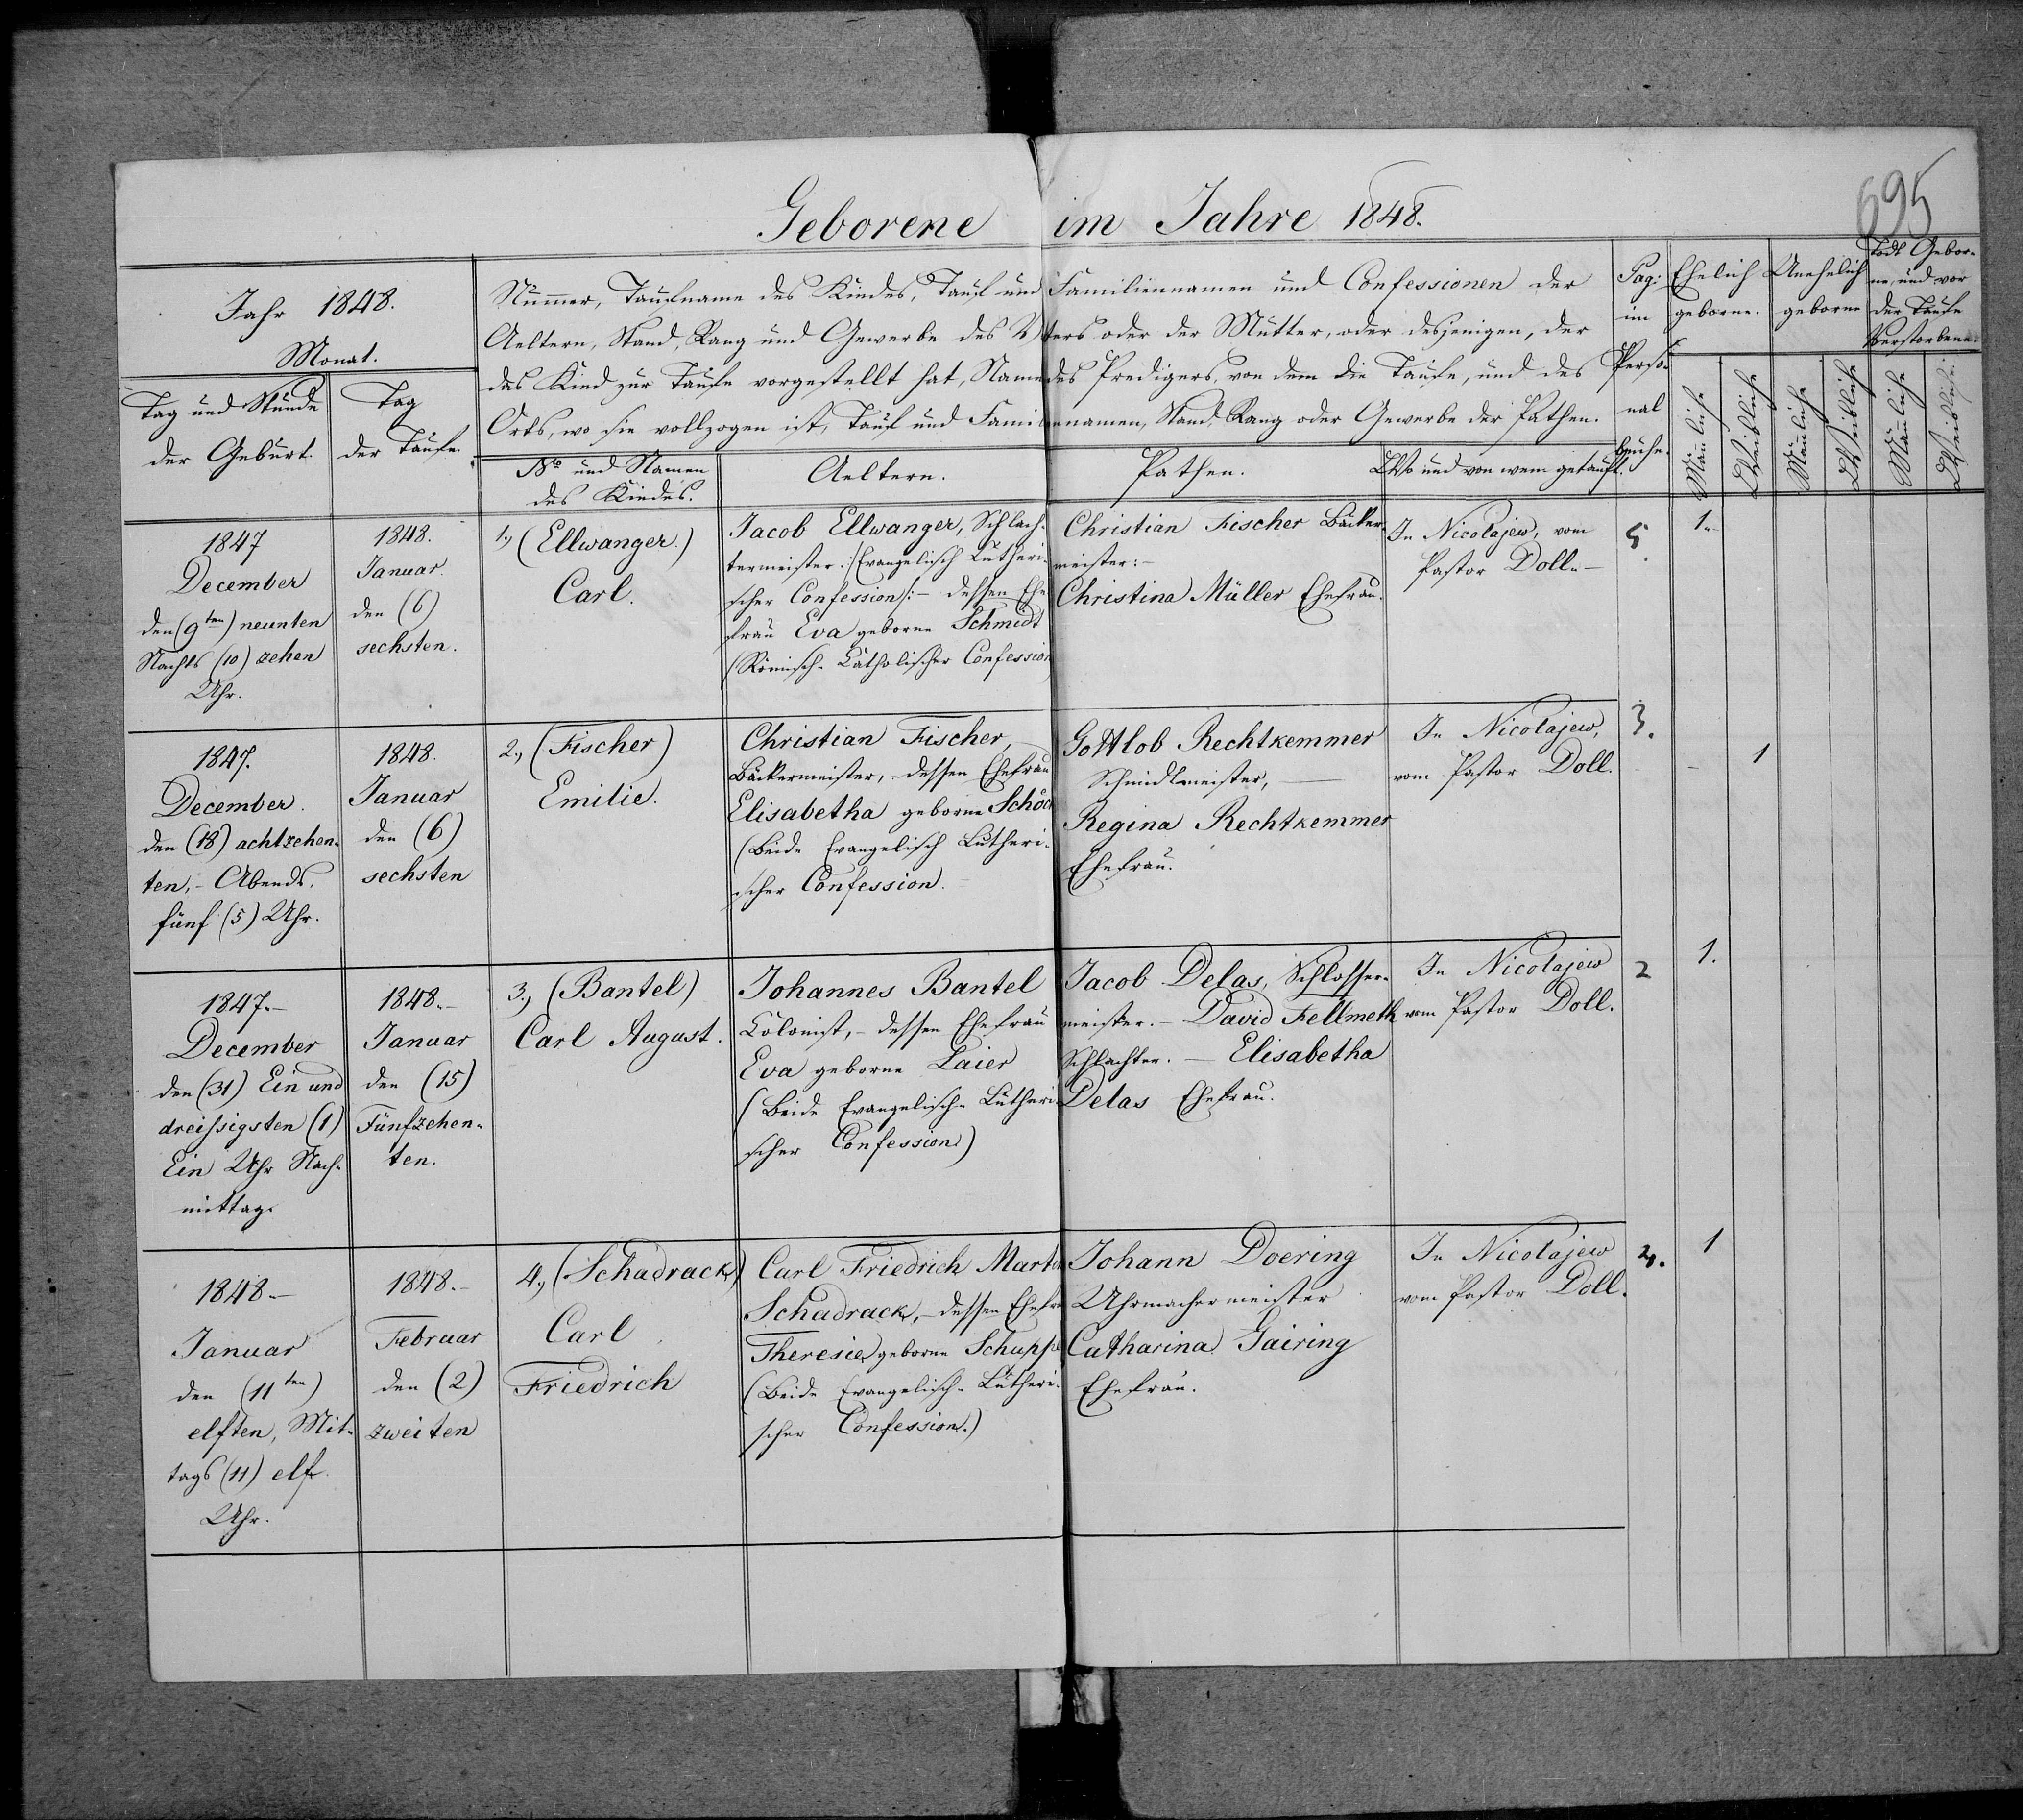 695
Geborene im Jahre 1848.
Jahr 1848.
Monat.
Tag und Stunde
der Geburt.
Tag
der Taufe.
Nummer, Taufname des Kindes, Tauf und Familiennamen und Confessionen der
Aeltern, Stand, Rang und Gewerbe des Vaters oder der Mutter, oder desjenigen, der
das Kind zur Taufe vorgestellt hat, Name des Predigers, von dem die Taufe, und des
Orts, wo sie vollzogen ist, Tauf und Familiennamen, Stand, Rang oder Gewerbe der Pathen.
No und Namen
des Kindes.
Aeltern.
Pathen.
Wo und von wem getauft.
Pag:
im
Perso-
nal
buche.
Ehelich
geborne.
Unehelich
geborne
Todt Gebor-
ne, und vor
der Taufe
Verstorbene.
Mänliche
Weibliche
Mänliche
Weibliche
Mänliche
Weibliche
1847
December
den (9ten) neunten
Nachts (10) zehen
Uhr.
1848.
Januar.
den (6)
sechsten.
1., (Ellwanger.)
Carl.
Jacob Ellwanger, Schlach-
termeister. /:Evangelisch Lutheri-
scher Confession:/ - dessen Ehe
frau Eva geborne Schmidt
(Römisch-Catholischer Confession)
Christian Fischer Bäcker-
meister:-
Christina Müller Ehefrau.
In Nicolajew, vom
Pastor Doll.-
5.
1.
1847.
December.
den (18) achtzehen-
ten, - Abends,
fünf (5) Uhr.
1848.
Januar
den (6)
sechsten
2., (Fischer)
Emilie.
Christian Fischer,
Bäckermeister, - dessen Ehefrau
Elisabetha geborne Schöck
(Beide Evangelisch Lutheri-
scher Confession.
Gottlob Rechtkemmer
Schmidtmeister, -
Regina Rechtkemmer
Ehefrau.
In Nicolajew,
vom Pastor Doll.
3.
1
1847.-
December
den (31) Ein und
dreissigsten (1)
Ein Uhr Nach-
mittag.
1848.-
Januar
den (15)
Fünfzehen-
ten.
3., (Bantel)
Carl August.
Johannes Bantel
Colonist, - dessen Ehefrau
Eva geborne Laier
(Beide Evangelisch-Lutheri-
scher Confession)
Jacob Delas, Schlosser-
meister. - David Fellmeth
Schlachter. - Elisabetha
Delas Ehefrau.
In Nicolajew
vom Pastor Doll.
2
1.
1848-
Januar
den (11ten)
elften, Mit-
tags (11) elf
Uhr.
1848.-
Februar
den (2)
zweiten
4., (Schadrack)
Carl
Friedrich
Carl Friedrich Martin
Schadrack, - dessen Ehefr
Theresie geborne Schuppe
(Beide Evangelisch-Lutheri-
scher Confession.)
Johann Doering
Uhrmachermeister
Catharina Gairing
Ehefrau.
In Nicolajew
vom Pastor Doll.
4.
1